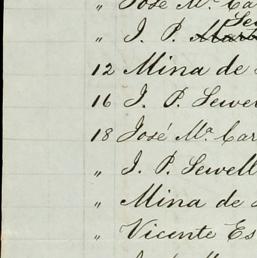 " José Mª Ca
" J. P. Sew
12 Mina de
16 J. P. Sewel
18 José Mª Car
" J. P. Sewell
" Mina de
" Vicente Es